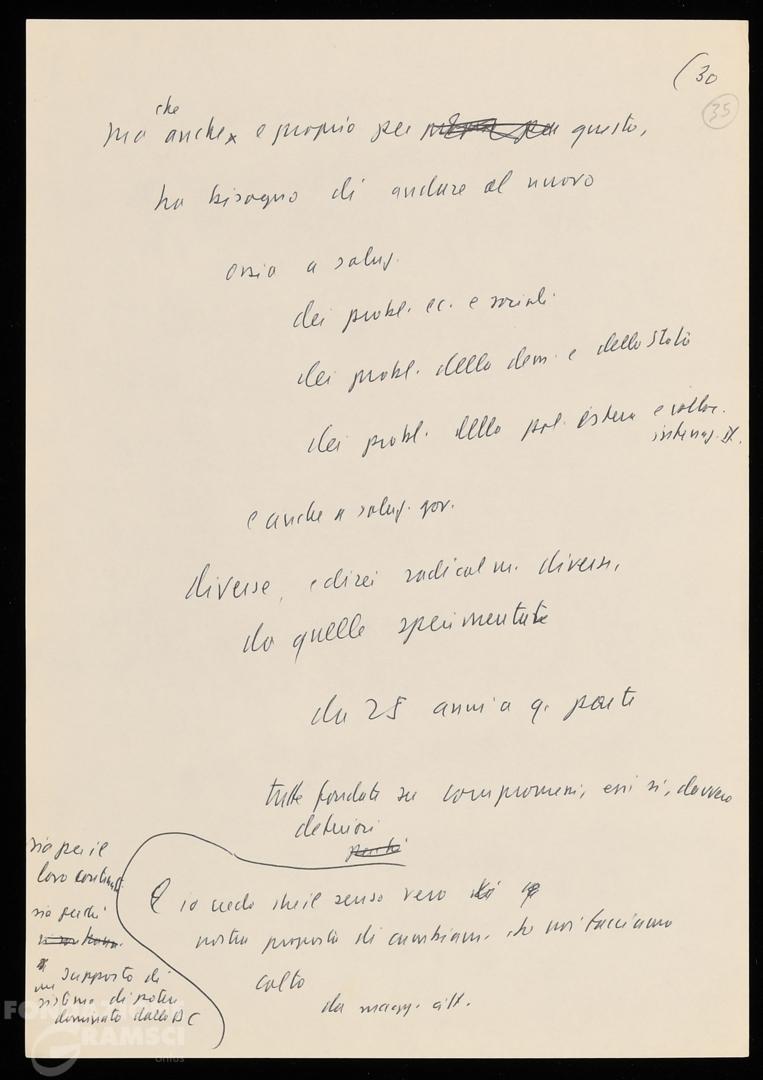 (30
35
che
ma anche e proprio per questo,
ha bisogno di andare al nuovo
ossia a soluz.
dei probl. ec. e sociali
dei probl. della dem. e dello Stato
dei probl. della pol. estera e colloc.
internaz. It.
e anche a soluz. gov.
diverse, e direi radicalm. diverse,
da quelle sperimentate
da 25 anni a q. parte
tutte fondate su compromessi, essi sì, davvero
deteriori
perché
sia per il
loro conten.
sia perché
supporto di
sistema di potere
dominato dalla DC
E io credo che il senso vero
nostra proposta di cambiam. che noi facciamo
colto
da magg. citt.
FONDAZIONE
GRAMSCI
onlus